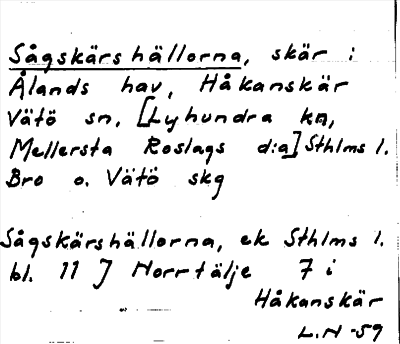 Sågskärshällorna, skär i
Ålands hav, Håkanskär
Vätö sn, [Lyhundra kn,
Mellersta Roslags d:a] Sthlms l.
Bro o. Vätö skg
Sågskärshällorna, ek Sthlms l.
bl. 11 J Norrtälje 7 i
Håkanskär
L.N -59